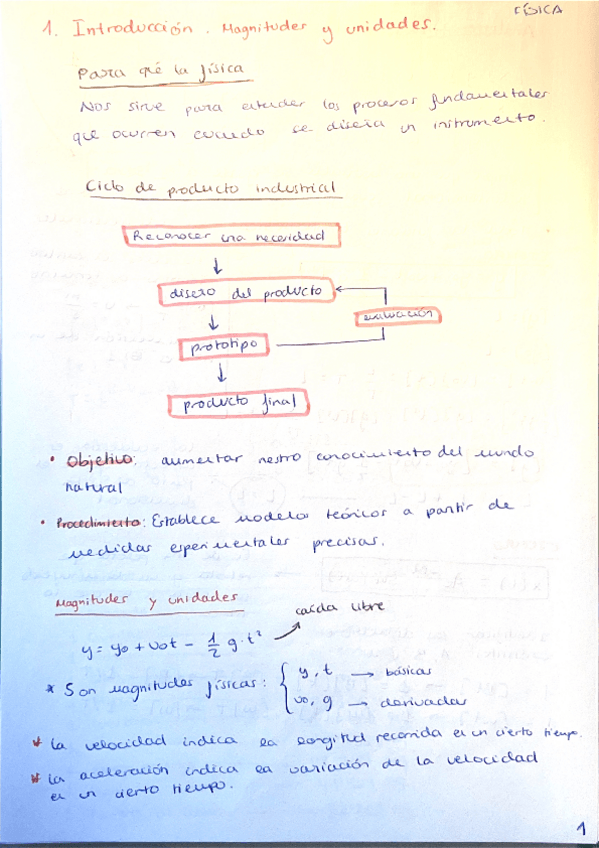 FÍSICA
1. Introducción. Magnitudes y unidades.
Para qué la física
Nos sirve para entender los procesos fundamentales
que ocurren cuando se diseña un instrumento.
Ciclo de producto industrial
Reconocer una necesidad
diseño del producto
evaluación
prototipo
producto final
• Objetivo: aumentar nestro conocimiento del mundo
natural
• Procedimiento: Establece modelos teóricos a partir de
medidas experimentales precisas.
Magnitudes y unidades
caída libre
y = y₀ + v₀t - 1/2 g·t²
* Son magnitudes físicas: { y, t → básicas
v₀, g → derivadas
* La velocidad indica la longitud recorrida en un cierto tiempo.
* La aceleración indica la variación de la velocidad
en un cierto tiempo.
1